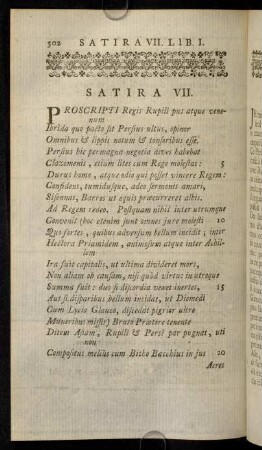 302 SATIRA VII. LIB. I.
SATIRA VII.
PROSCRIPTI Regis Rupili pus atque vene-
num
Ibrida quo pacto sit Persius ultus, opinor
Omnibus & lippis notum & tonsoribus esse.
Persius hic permagna negotia dives habebat
Clazomenis, etiam lites cum Rege molestas: 5
Durus homo, atque odio qui posset vincere Regem:
Confidens, tumidusque, adeo sermonis amari,
Sisennas, Barros ut equis præcurreret albis.
Ad Regem redeo. Postquam nihil inter utrumque
Convenit (hoc etenim sunt omnes jure molesti 10
Quo fortes, quibus adversum bellum incidit, inter
Hectora Priamidem, animosum atque inter Achil-
lem
Ira fuit capitalis, ut ultima divideret mors,
Non aliam ob causam, nisi quòd virtus in utroque
Summa fuit: duo si discordia vexet inertes, 15
Aut si disparibus bellum incidat, ut Diomedi
Cum Lycio Glauco, discedat pigrior ultro
Muneribus missis) Bruto Prætore tenente
Ditem Asiam, Rupili & Persî par pugnat, uti
non
Compositus melius cum Bitho Bacchius in jus 20
Acres